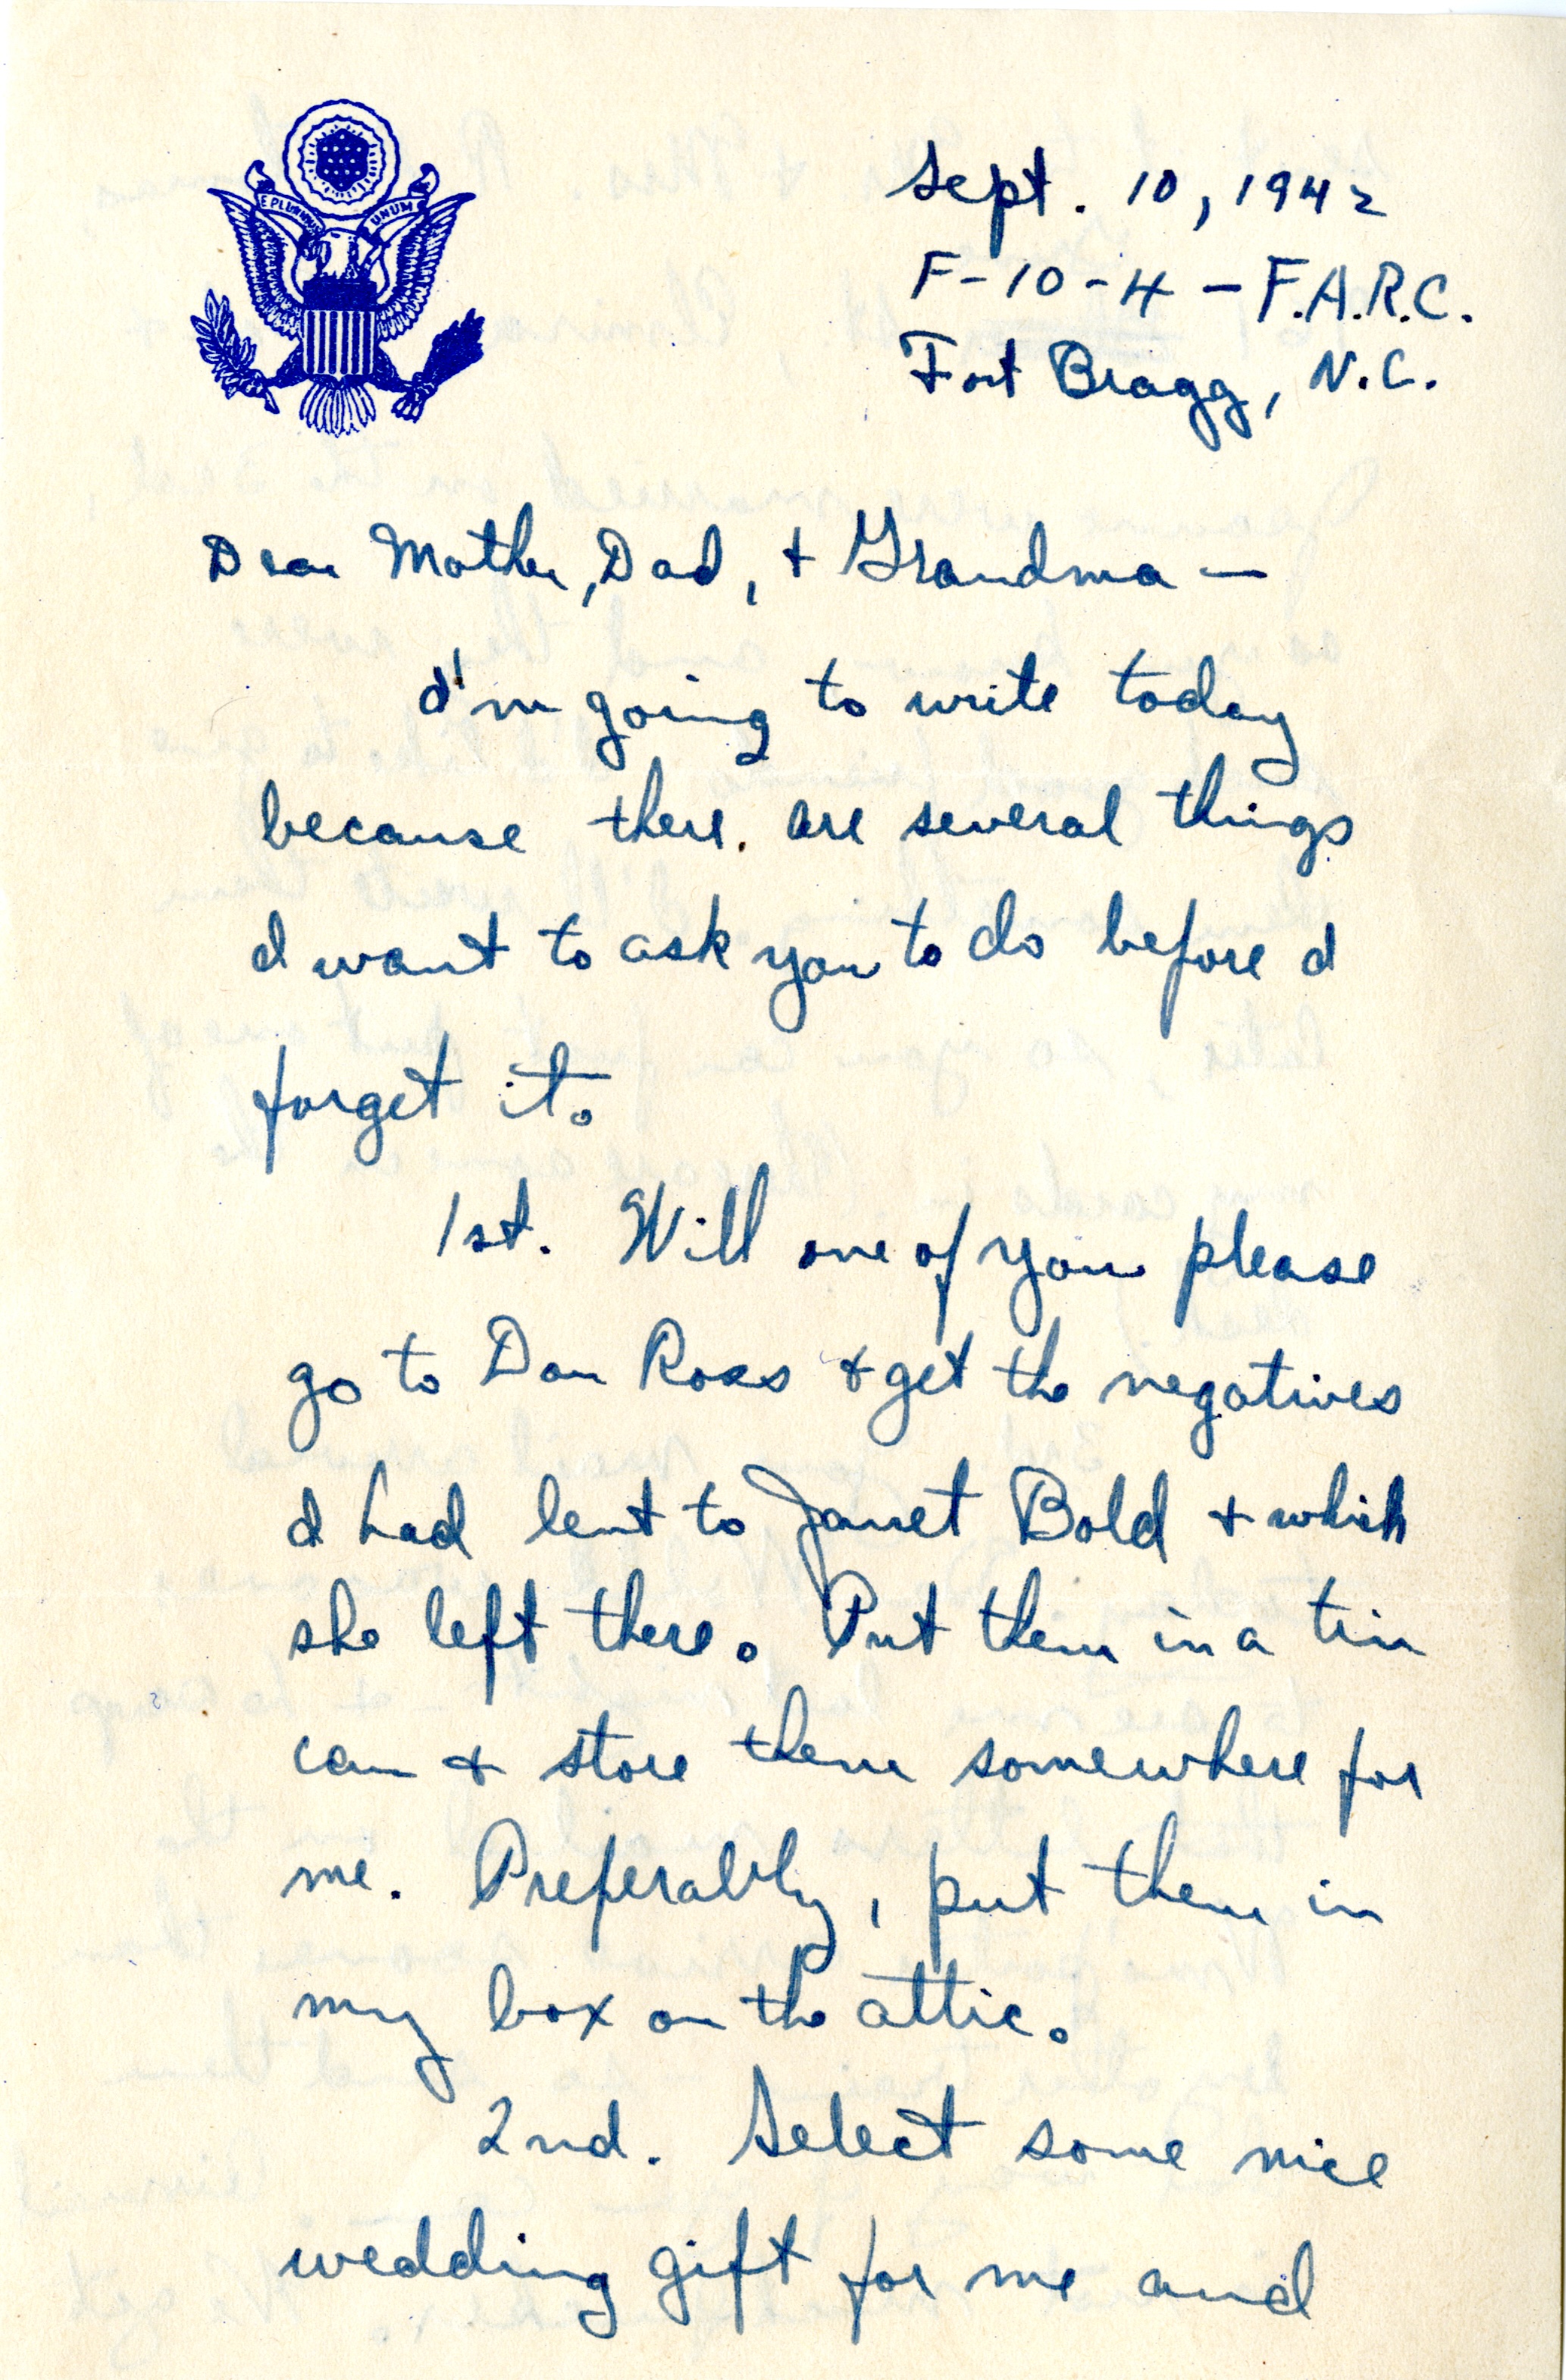 E PLURIBUS UNUM
Sept. 10, 1942
F-10-4-F.A.R.C.
Fort Bragg, N.C.
Dear Mother, Dad, + Grandma —
I'm going to write today
because there are several things
I want to ask you to do before I
forget it.
1st. Will one of you please
go to Dan Ross + get the negatives
I had lent to Janet Bold + which
she left there. Put them in a tin
can + store them somewhere for
me. Preferably, put them in
my box on the attic.
2nd. Select some nice
wedding gift for me and